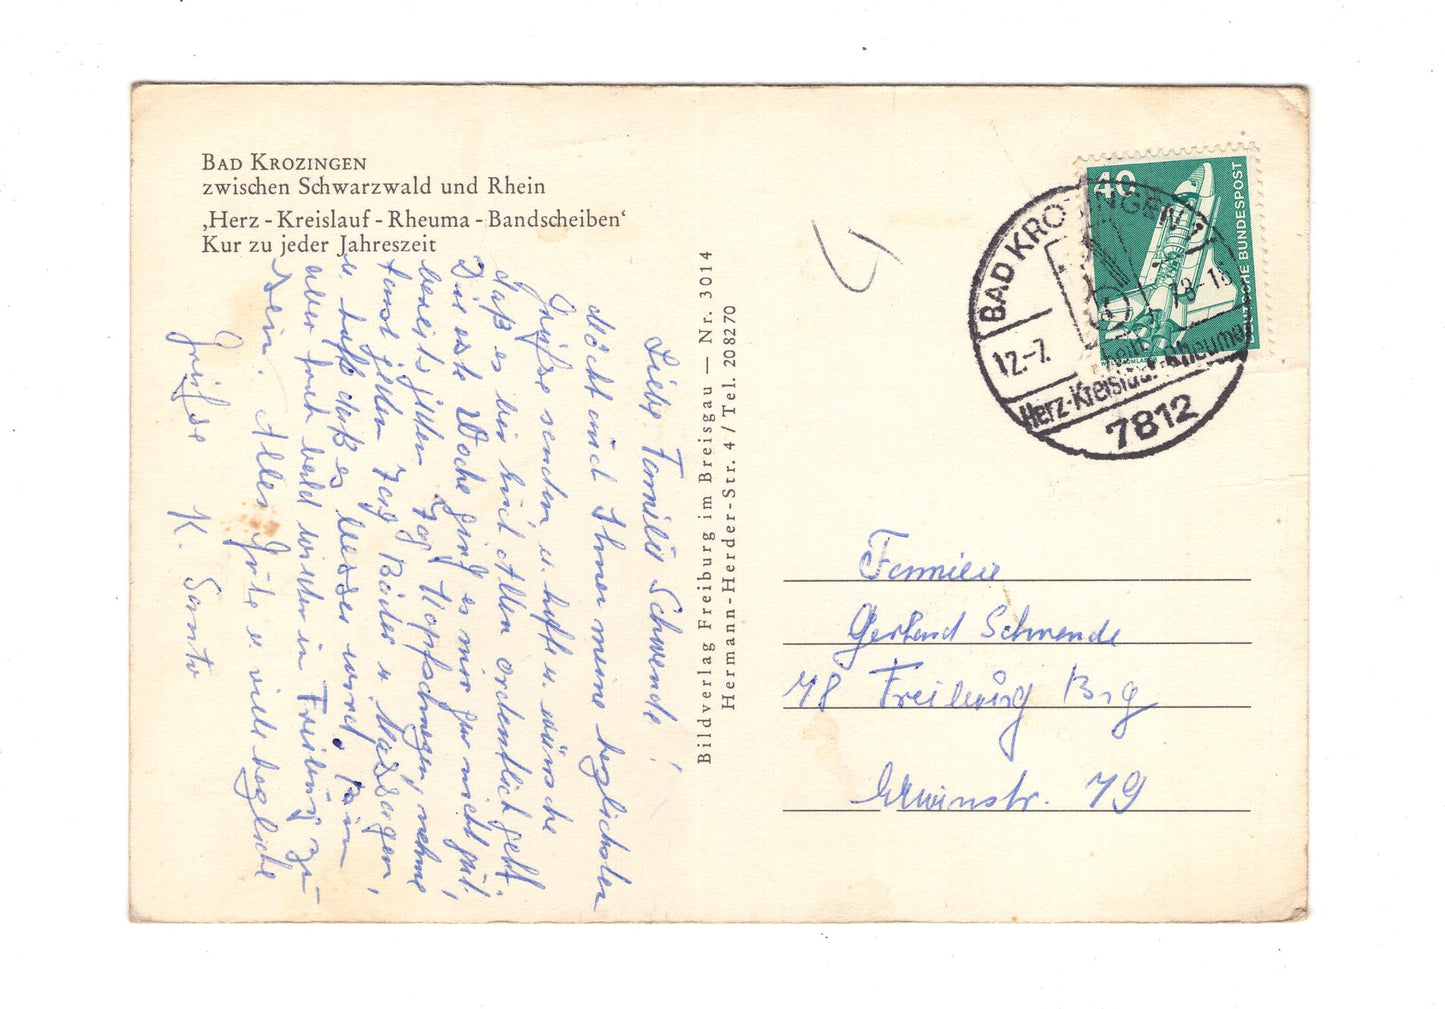 BAD KROZINGEN
zwischen Schwarzwald und Rhein
‚Herz - Kreislauf - Rheuma - Bandscheiben‘
Kur zu jeder Jahreszeit
Liebe Familie Schwende!
Möcht auch Ihnen meine herzlichsten
Grüße senden u. hoffe u. wünsche
daß es bei Euch Allen ordentlich geht.
Die erste Woche ging es mir gar nicht gut,
bereits jeden Tag Kopfschmerzen, nehme
fast jeden Tag Bäder u. Massagen,
u. hoffe daß es besser wird. Bin
aber froh bald wieder in Freiburg zu
sein. Alles Gute u. viele herzliche
Grüße K. Santo
Bildverlag Freiburg im Breisgau — Nr. 3014
Hermann-Herder-Str. 4 / Tel. 208270
40
DEUTSCHE BUNDESPOST
BAD KROZINGEN
12.-7.
-18
Herz-Kreislauf-Rheuma
7812
Familie
Gerhard Schwende
78 Freiburg Brg
Erwinstr. 79